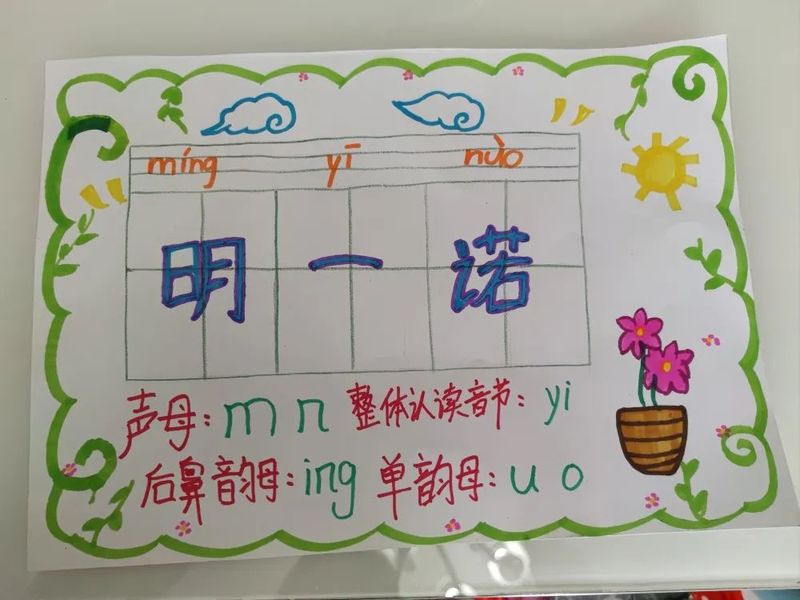 míng yī nuò
明一诺
声母：m n 整体认读音节：yi
后鼻韵母：ing 单韵母：u o